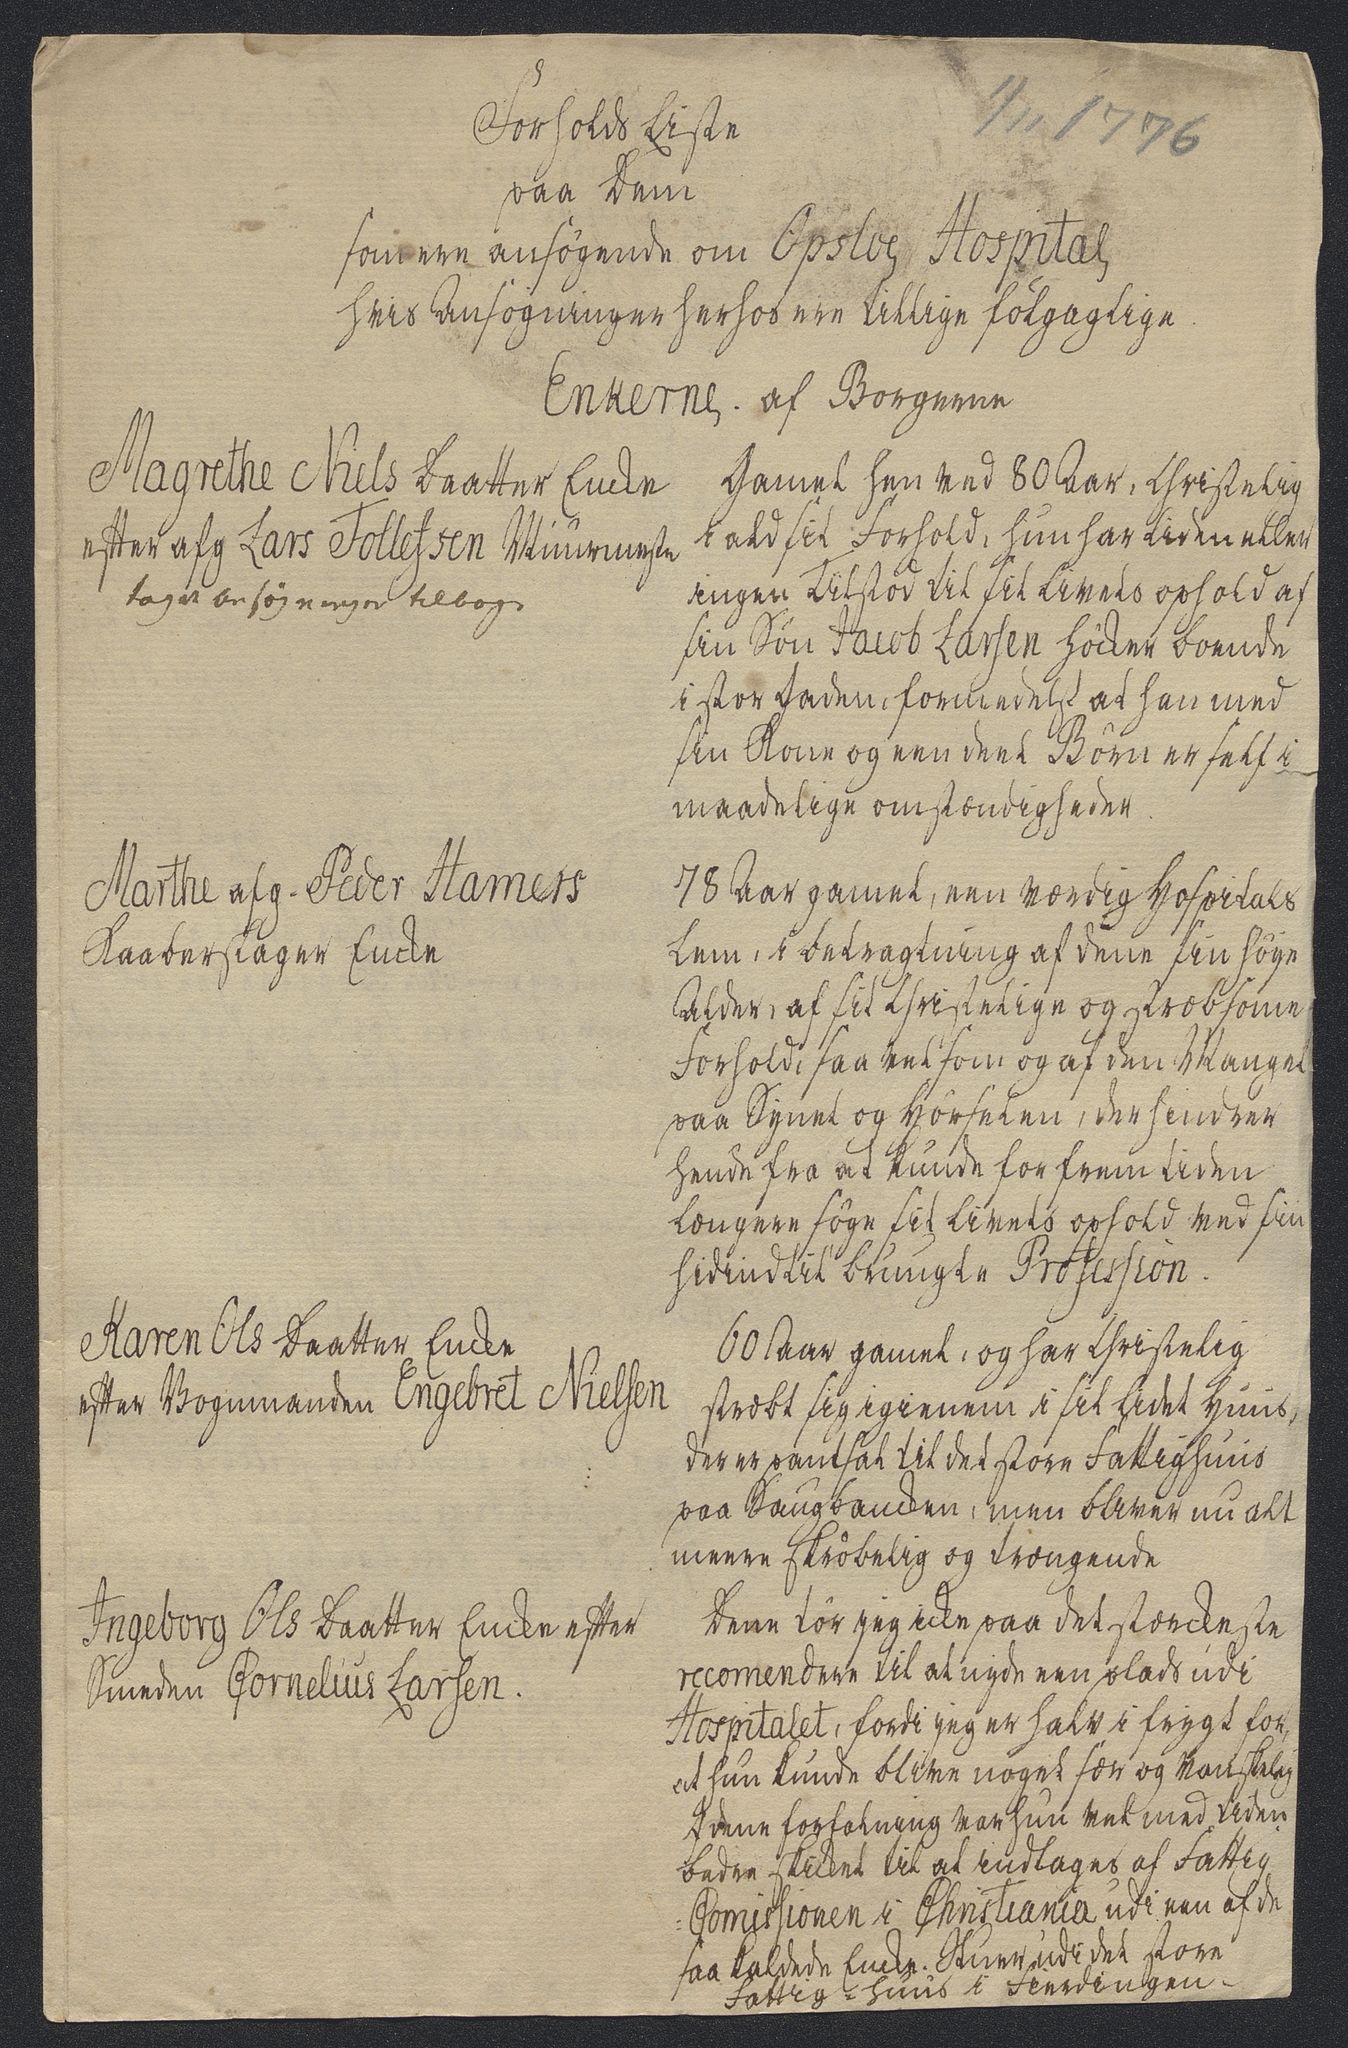 1/11 1776
Forholds Liste
paa Dem
som ere ansøgende om Opsloe Hospital
hvis Ansøgninger herhos ere tillige følgagtige.
Enkerne. af Borgerne
Magrethe Niels Daatter Encke
efter afg Lars Tollefsen Muurmester
taget ansøgningen tilbage
Gamel hen ved 80 Aar, Christelig
i ald sit Forhold, hun har liden eller
ingen Tilstød til sit Livets ophold af
sin Søn Jacob Larsen Höcker boende
i stor Gaden, formedelst at han med
sin Kone og een deel Børn er self i
maadelige omstændigheder.
Marthe afg. Peder Hamers
Kaaberslager Encke
78 Aar gamel, een værdig Hospitals
Lem, i betragtning af dene sin høye
Alder, af sit Christelige og stræbsome
Forhold, saa vel som og af den Mangel
paa Synet og Hørselen, der hindrer
hende fra at kunde for frem tiden
længere søge sit Livets ophold ved sin
hidindtil brugte Profession.
Karen Ols Daatter Encke
efter Vognmanden Engebret Nielsen
60 Aar gamel, og har Christelig
stræbt sig igienem i sit lidet Huus,
der er pantsat til det store Fattighuus
paa Saugbancken, men bliver nu alt
meere skrøbelig og trængende
Ingeborg Ols Daatter Encke efter
Smeden Cornelius Larsen.
Dene tør jeg icke paa det stærckeste
recomendere til at nyde een plads udi
Hospitalet, fordi jeg er halv i frygt for,
at hun kunde blive noget sær og vanskelig
I dene forfatning var hun vel med tiden
bedre skicket til at indtages af Fattig
=Comissionen i Christiania udi een af de
saa kaldede Encke-Stuer udi det store
Fattig=huus i Fierdingen.